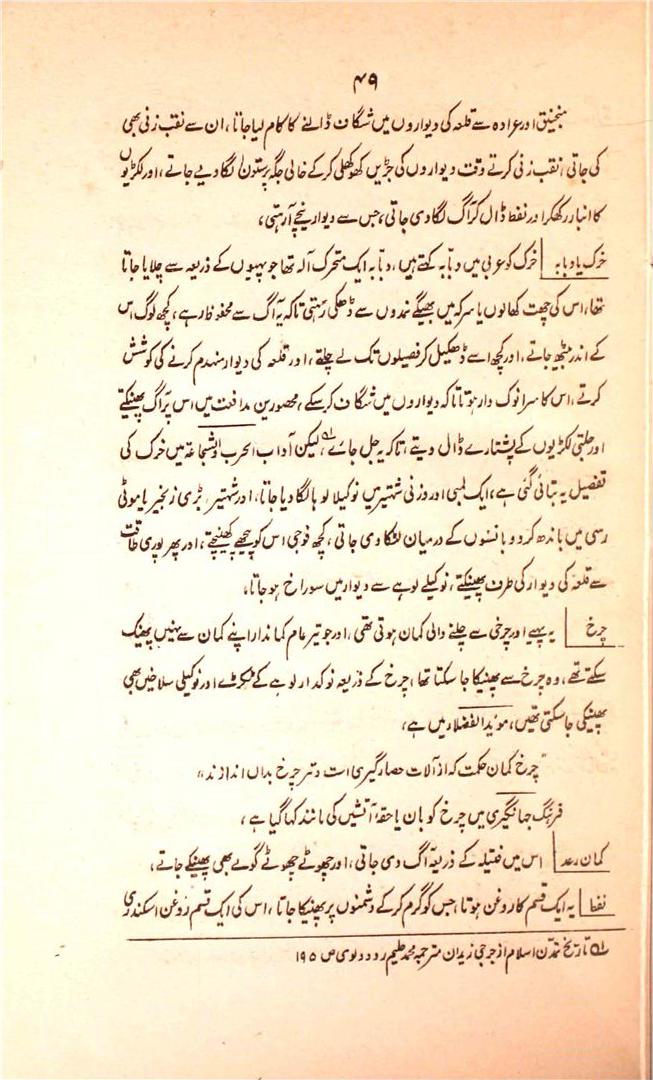 ۴۹
منجنیق اور عرادہ سے قلعہ کی دیواروں میں شگاف ڈالنے کا کام لیا جاتا، ان سے نقب زنی بھی
کی جاتی، نقب زنی کرتے وقت دیواروں کی جڑیں کھوکھلی کرکے خالی جگہ پر ستون لگا دیے جاتے، اور لکڑیوں
کا انبار رکھکر اور نفط ڈال کر آگ لگا دی جاتی، جس سے دیوار نیچے آرہتی،
خرک یا دبابہ خرک کو عربی میں دبّابہ کہتے ہیں، دبّابہ ایک متحرک آلہ تھا جو پہیوں کے ذریعہ سے چلایا جاتا
تھا، اس کی چھت کھالوں یا سرکہ میں بھیگے نمدوں سے ڈھکی رہتی تاکہ یہ آگ سے محفوظ رہے، کچھ لوگ اس
کے اندر بیٹھ جاتے، اور کچھ اسے ڈھکیل کر فصیلوں تک لے چلتے، اور قلعہ کی دیوار منہدم کرنے کی کوشش
کرتے، اس کا سرا نوک دار ہوتا تاکہ دیواروں میں شگاف کرسکے، محصورین مدافعت میں اس پر آگ پھینکتے
اور جلتی لکڑیوں کے پشتارے ڈال دیتے، تاکہ یہ جل جائے، لیکن آداب الحرب والشجاعۃ میں خرک کی
تفصیل یہ بتائی گئی ہے، ایک لمبی اور وزنی شہتیر میں نوکیلا لوہا لگا دیا جاتا، اور شہتیر بڑی زنجیر یا موٹی
رسی میں باندھ کر دو بانسوں کے درمیان لٹکا دی جاتی، کچھ فوجی اس کو پیچھے کھینچتے، اور پھر پوری طاقت
سے قلعہ کی دیوار کی طرف پھینکتے، نوکیلے لوہے سے دیوار میں سوراخ ہو جاتا،
چرخ یہ پہیے اور چرخی سے چلنے والی کمان ہوتی تھی، اور جو تیر عام کماندار اپنے کمان سے نہیں پھینک
سکتے تھے، وہ چرخ سے پھینکا جا سکتا تھا، چرخ کے ذریعہ نوکدار لوہے کے ٹکڑے اور نوکیلی سلاخیں بھی
پھینکی جاسکتی تھیں، مؤید الفضلاء میں ہے،
"چرخ کمان حکمت کہ از آلات حصارگیری است و تیر چرخ بداں اندازند"
فرہنگ جہانگیری میں چرخ کو بان یا حقۂ آتشیں کی مانند کہا گیا ہے،
کمان رعد اس میں فتیلہ کے ذریعہ آگ دی جاتی، اور چھوٹے چھوٹے گولے بھی پھینکے جاتے،
نفط یہ ایک قسم کا روغن ہوتا، جس کو گرم کرکے دشمنوں پر پھینکا جاتا، اس کی ایک قسم روغن اسکندری
لہ تاریخ تمدن اسلام از جرجی زیدان مترجمہ محمد حلیم رودولوی ص ۱۹۵